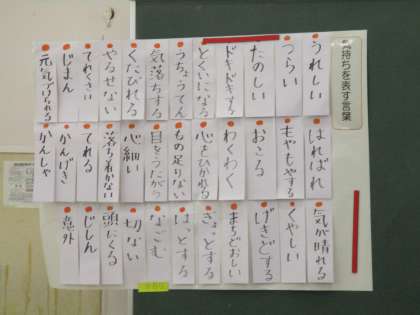 気持ちを表す言葉
うれしい
つらい
たのしい
ドキドキする
とくいになる
うちょうてん
気落ちする
くたびれる
やるせない
てれくさい
じまん
元気づけられる
はればれ
もやもやする
おこる
わくわく
心をひかれる
もの足りない
目をうたがう
心細い
落ち着かない
てれる
かんげき
かんしゃ
気が晴れる
くやしい
げきどする
まちどおしい
ぎょっとする
はっとする
なごむ
切ない
頭にくる
じしん
意外